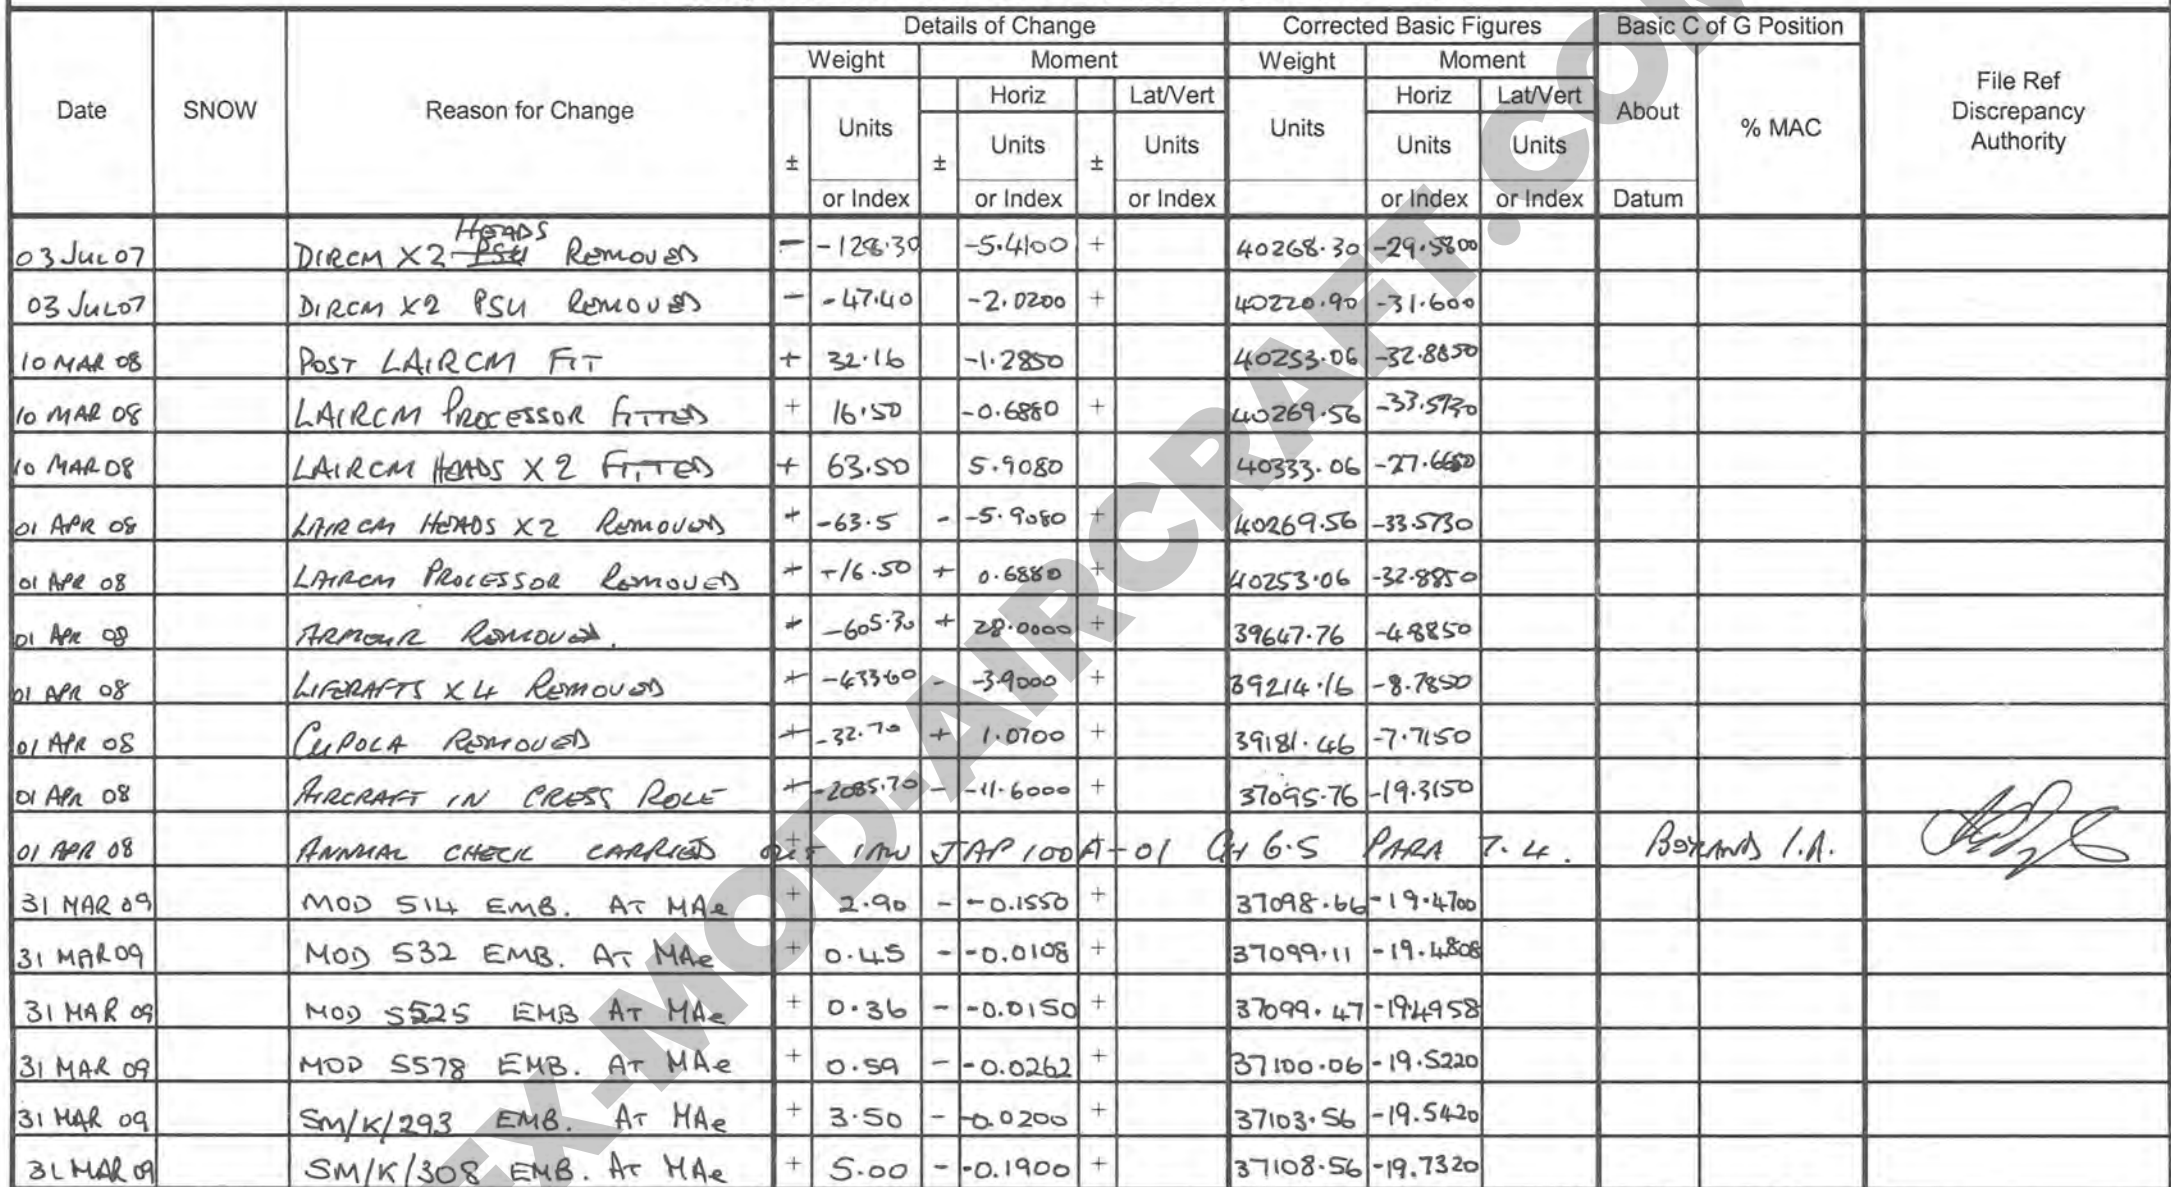 Details of Change Corrected Basic Figures Basic C of G Position
Weight Moment Weight Moment
Date SNOW Reason for Change ± Units or Index ± Horiz Units or Index ± Lat/Vert Units or Index Units Horiz Units or Index Lat/Vert Units or Index About Datum % MAC File Ref Discrepancy Authority
HEADS
03 JUL 07 DIRCM X2 PSU REMOVED - -128.30 -5.4100 + 40268.30 -29.5800
03 JUL 07 DIRCM X2 PSU REMOVED - -47.40 -2.0200 + 40220.90 -31.600
10 MAR 08 POST LAIRCM FIT + 32.16 -1.2850 40253.06 -32.8850
10 MAR 08 LAIRCM PROCESSOR FITTED + 16.50 -0.6880 + 40269.56 -33.5730
10 MAR 08 LAIRCM HEADS X 2 FITTED + 63.50 5.9080 40333.06 -27.6650
01 APR 08 LAIRCM HEADS X2 REMOVED + -63.5 - -5.9080 + 40269.56 -33.5730
01 APR 08 LAIRCM PROCESSOR REMOVED + -16.50 + 0.6880 + 40253.06 -32.8850
01 APR 08 ARMOUR REMOVED. + -605.30 + 28.0000 + 39647.76 -4.8850
01 APR 08 LIFERAFTS X 4 REMOVED + -433.60 - -3.9000 + 39214.16 -8.7850
01 APR 08 CUPOLA REMOVED + -32.70 + 1.0700 + 39181.46 -7.7150
01 APR 08 AIRCRAFT IN CRESS ROLE + -2085.70 - -11.6000 + 37095.76 -19.3150
01 APR 08 ANNUAL CHECK CARRIED OUT IAW JAP 100A-01 CH 6.5 PARA 7.4. I.A.
31 MAR 09 MOD 514 EMB. AT MAe + 2.90 - -0.1550 + 37098.66 -19.4700
31 MAR 09 MOD 532 EMB. AT MAe + 0.45 - -0.0108 + 37099.11 -19.4808
31 MAR 09 MOD 5525 EMB AT MAe + 0.36 - -0.0150 + 37099.47 -19.4958
31 MAR 09 MOD 5578 EMB. AT MAe + 0.59 - -0.0262 + 37100.06 -19.5220
31 MAR 09 SM/K/293 EMB. AT MAe + 3.50 - -0.0200 + 37103.56 -19.5420
31 MAR 09 SM/K/308 EMB. AT MAe + 5.00 - -0.1900 + 37108.56 -19.7320
EX-MOD-AIRCRAFT.COM